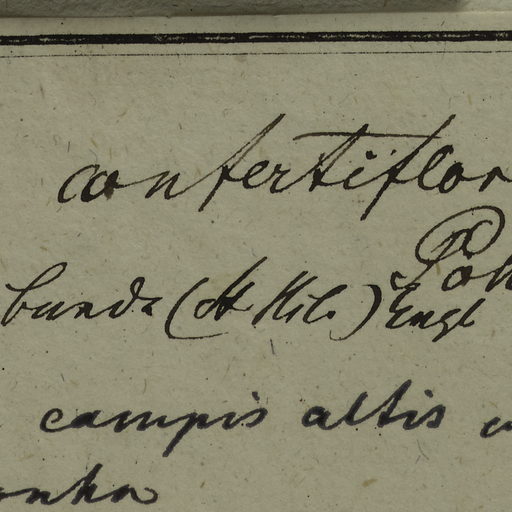 confertiflor
Poh
bunda (St Hil.) Engl
campis altis
onha